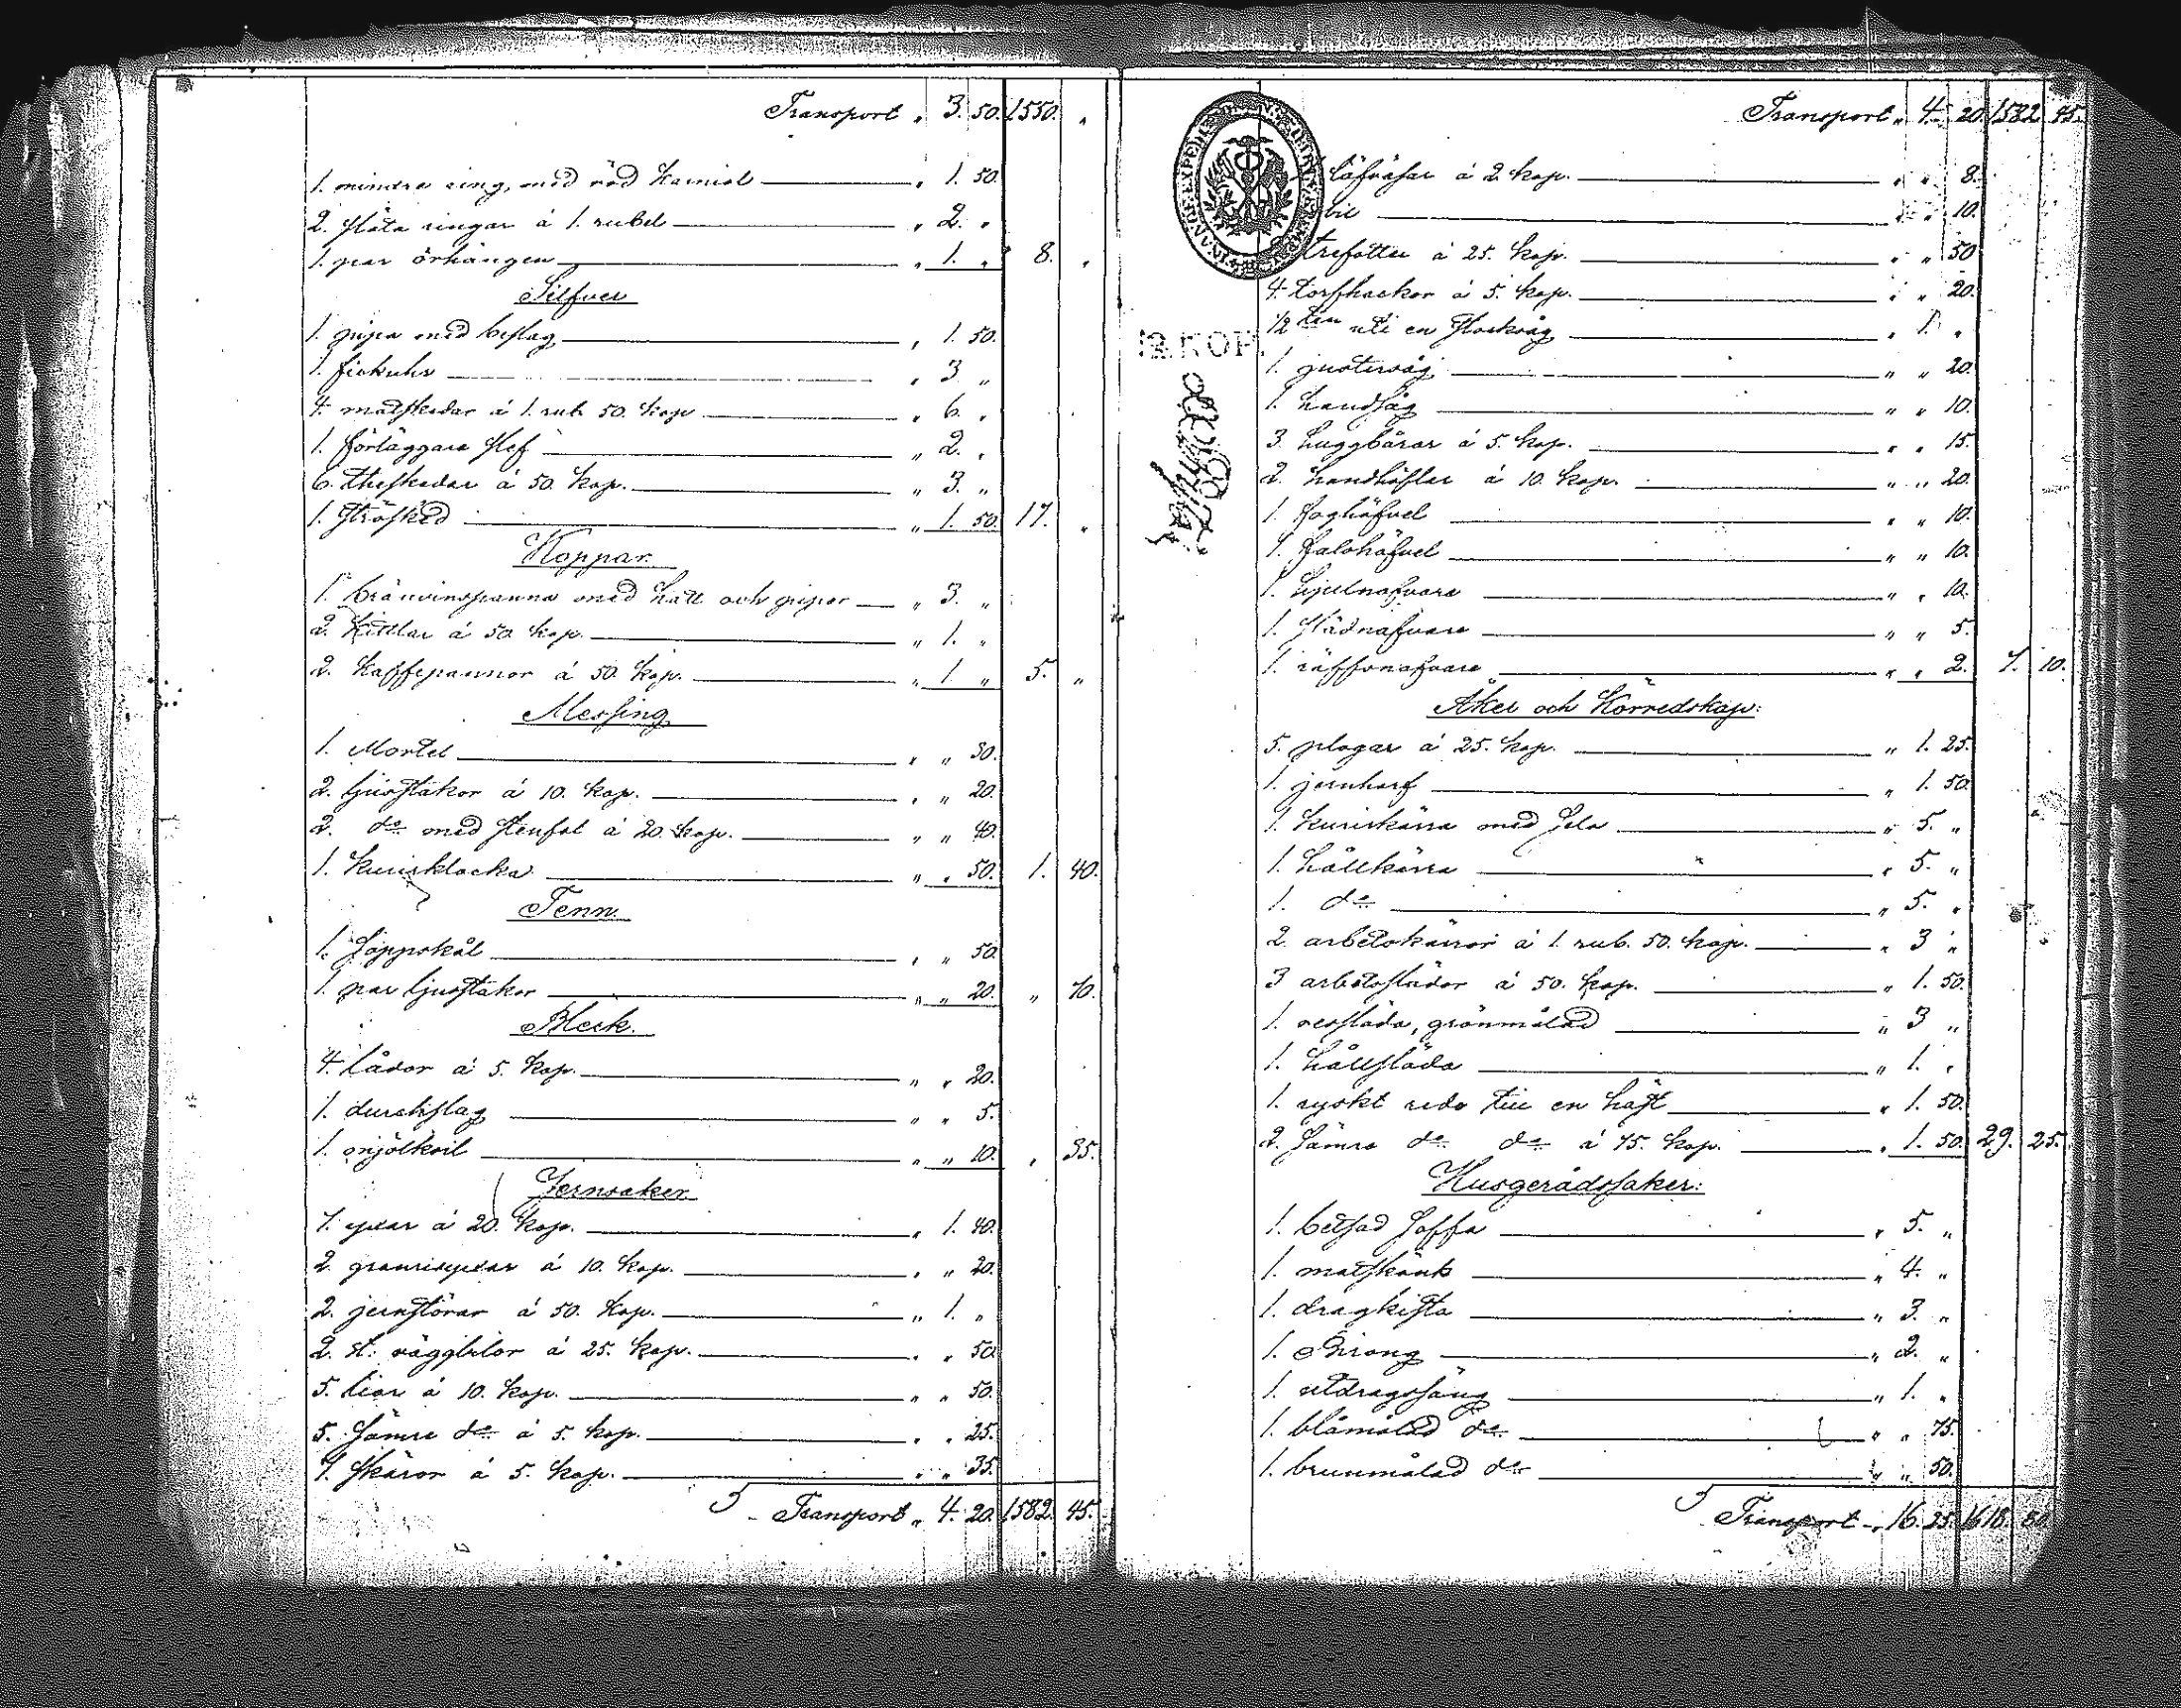 Transport „ 3. 50. 1550. „
1. mindre ring, med röd Karniol „ 1. 50.
2. släta ringar á 1. rubel „ 2. „
1. par örhängen „ 1. „ 8. „
Silfver
1. pipa med beslag „ 1. 50.
1. fickuhr „ 3 „
4. matskedar á 1. rub. 50. kop. „ 6. „
1. förläggare slef „ 2. „
6. theskedar á 50. kop. „ 3. „
1. strösked „ 1. 50. 17. „
Koppar.
1. bränvinspanna med hatt och pipor „ 3. „
2. kittlar á 50. kop. „ 1. „
2. kaffepannor á 50. kop. „ 1 „ 5. „
Messing
1. Mortel „ „ 30.
2. ljusstakor á 10. kop. „ „ 20.
2. do med stenfot á 20. kop. „ „ 40.
1. kurirklocka „ „ 50. 1. 40.
Tenn.
1. soppskål „ „ 50.
1. par ljusstakor „ „ 20. „ 70.
Bleck.
4. lådor á 5. kop. „ „ 20.
1. durchslag „ „ 5.
1. mjölksil „ „ 10. „ 35.
Jernsaker
7. yxar á 20. kop. „ 1. 40.
2. granrisyxar á 10. kop. „ „ 20.
2. jernstörar á 50. kop. „ 1. „
2. st. väggbilor á 25. kop. „ „ 50.
5. liar á 10. kop. „ „ 50.
5. sämre do á 5. kop. „ „ 25.
7. skäror á 5. kop. „ „ 35.
Transport „ 4. 20. 1582. 45.
Transport „ 4. 20. 1582 45.
á 2 kop. „ „ 8.
„ „ 10.
trefötter á 25. kop. „ „ 50
4. torfhackor á 5. kop. „ „ 20.
1/2 ten uti en stockåg „ 1. „
1. „ „ 20.
1. handsåg „ „ 10.
3. huggbårar á 5. kop. „ „ 15.
2. handhöflar á 10. kop. „ „ 20.
1. foghöfvel „ „ 10.
1. falshöfvel „ „ 10.
1. hjulnafvare „ „ 10.
1. slädnafvare „ „ 5.
1. räffsnafvare „ „ 2. 7. 10.
Åker och Körredskap:
5. plogar á 25. kop. „ 1. 25.
1. jernharf „ 1. 50.
1. kurirkärra med sela „ 5. „
1. hållkärra „ 5. „
1. do „ 5. „
2. arbetskärror á 1. rub. 50. kop. „ 3 „
3 arbetsslädor á 50. kop. „ 1. 50.
1. ressläda, grönmålad „ 3 „
1. hållsläda „ 1. „
1. ryskt rede till en häst „ 1. 50.
2. sämre do do á 75. kop. „ 1. 50. 29. 25.
Husgerådssaker:
1. betsad soffa „ 5. „
1. matskänk „ 4. „
1. dragkista „ 3. „
1. Chirong „ 2. „
1. utdragssäng „ 1. „
1. blåmålad do „ „ 75.
1. brunmålad do „ „ 50.
Transport „ 16. 25. 1618. 80.